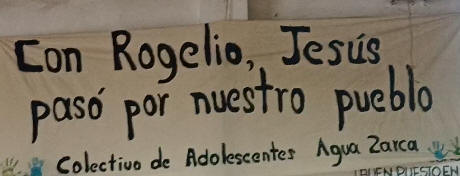 Con Rogelio, Jesús
pasó por nuestro pueblo
Colectivo de Adolescentes Agua Zarca